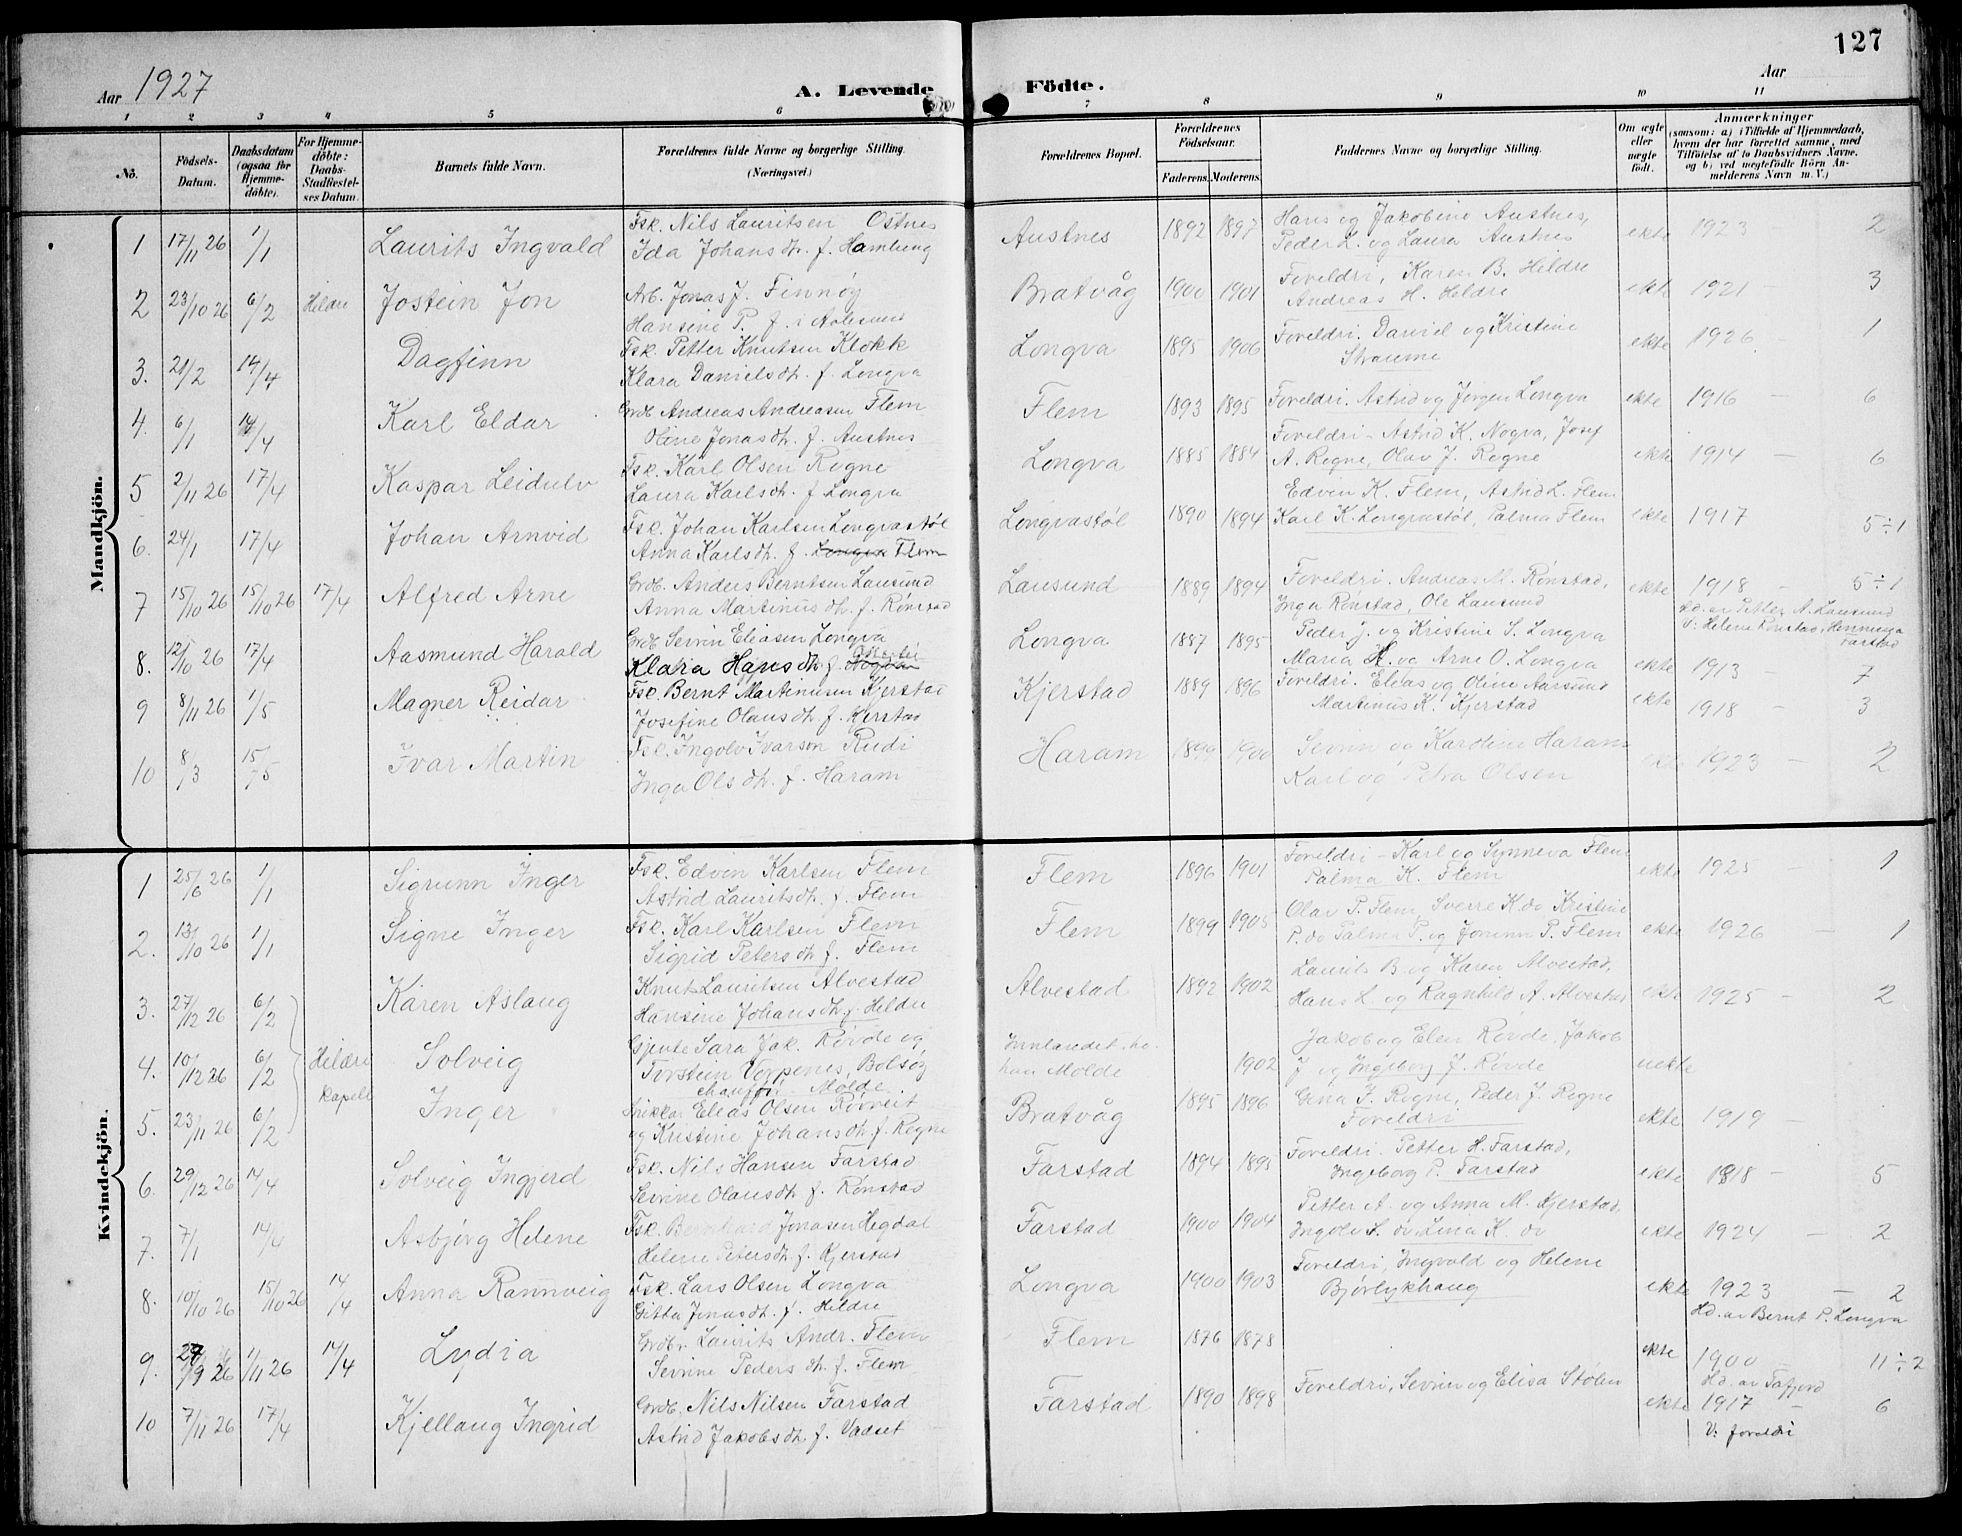 127
Aar 1927
A. Levende Födte.
Aar
1 2 3 4 5 6 7 8 9 10 11
No.
Födsels-Datum.
Daabsdatum (ogsaa for Hjemme-döbte).
For Hjemme-döbte: Daabs-Stadfæstel-ses Datum.
Barnets fulde Navn.
Forældrenes fulde Navne og borgerlige Stilling. (Næringsvei.)
Forældrenes Bopæl.
Forældrenes Födselsaar.
Faderens. Moderens.
Faddernes Navne og borgerlig Stilling.
Om ægte eller uægte födt.
Anmærkninger (saasom: a) i Tilfælde af Hjemmedaab, hvem der har forrettet samme, med Tilföielse af to Daabsvidners Navne, og b) ved uegtefödte Börn An-melderens Navn m. V.)
Mandkjön.
1 17/11 26 1/1 Laurits Ingvald Fsk. Nils Lauritsen Ostnes Austnes 1892 1897 Hans og Jakobine Austnes, ekte 1923 2
Ida Johansdtr. f. Hamlung Peder L. og Laura Austnes
2 23/10 26 6/2 Hildre Jostein Jon Arb. Jonas J. Finnöy Bratvåg 1900 1901 Foreldri, Karen B. Hildre ekte 1921 — 3
Hansine P. f. i Aalesund Andreas H. Heldre
3. 21/2 14/4 Dagfinn Fsk. Petter Knutsen Klokk Longva 1895 1906 Foreldri. Daniel og Kristine ekte 1926 — 1
Klara Danielsdtr. f. Longva Straume
4. 6/1 14/4 Karl Eldar Grdb. Andreas Andreasen Flem Flem 1893 1895 Foreldri. Astrid og Jørgen Longva ekte 1916 — 6
Oline Jonasdtr. f. Austnes
5 2/11 26 17/4 Kaspar Leidulv Fsk. Karl Olsen Rogne Longva 1885 1884 Foreldri — Astrid K. Nogva, Josef ekte 1914 — 6
Laura Karlsdtr. f. Longva A. Rogne, Olav J. Rogne
6. 24/1 17/4 Johan Arnvid Fsk. Johan Karlsen Longvastøl Longvastøl 1890 1894 Edvin K. Flem, Astrid L. Flem ekte 1917 5÷1
Anna Karlsdtr. f. Longva Flem Karl K. Longvastøl, Palma Flem
7 15/10 26 15/10 26 17/4 Alfred Arne Grdb. Anders Berntsen Lausund Lausund 1889 1894 Foreldri. Andreas M. Rønstad, ekte 1918 — 5÷1
Anna Martinusdtr. f. Rønstad Inga Rønstad, Ole Lausund Hd. av Petter A. Lausund
V: Helene Rønstad, Henninga Farstad
8. 12/10 26 17/4 Aasmund Harald Grdb Sevrin Eliasen Longva Longva 1887 1895 Peder J. og Kristine S. Longva ekte 1913 — 7
Klara Hansdtr. f. Nogva Maria H. og Arne O. Longva
9 8/11 26 1/5 Magner Reidar Fsk. Bernt Martinusen Kjerstad Kjerstad 1889 1896 Foreldri. Elias og Oline Aarsund ekte 1918 — 3
Josefine Olausdtr. f. Kjerstad Martinus K. Kjerstad
10 8/3 15/5 Ivar Martin Fsk. Ingolv Ivarson Rudi Haram 1899 1900 Sevrin og Karoline Haram ekte 1923 — 2
Inga Olsdtr. f. Haram Karl og Petra Olsen
Kvindekjön.
1 25/6 26 1/1 Sigrunn Inger Fsk. Edvin Karlsen Flem Flem 1896 1901 Foreldri — Karl og Synneva Flem ekte 1925 — 1
Astrid Lauritsdtr. f. Flem Palma K. Flem
2. 13/10 26 1/1 Signe Inger Fsk. Karl Karlsen Flem Flem 1899 1905 Olav P. Flem, Sverre K. do Kristine ekte 1926 — 1
Sigrid Petersdtr. f. Flem P. do Palma P. og Jorunn P. Flem
3. 27/12 26 6/2 Karen Aslaug Knut Lauritsen Alvestad Alvestad 1892 1902 Laurits B. og Karen Alvestad, ekte 1925 — 2
Hansine Johansdtr. f. Heldre Hans L. og Ragnhild A. Alvestad
4. 10/12 26 6/2 Hildre kapell Solveig Gjente Sara Jak. Røvde og Innlandet, ho 1902 Jakob og Elen Røvde, Jakob uekte
Torstein Vorpenes, Bolsöy han Molde J og Ingeborg J. Røvde
chauffør Molde
5. 23/11 26 6/2 Inger Elias Olsen Rövreit Bratvåg 1895 1896 Gina J. Rogne, Peder J. Rogne ekte 1919 —
og Kristine Johansdtr. f. Rogne Foreldri
6. 29/12 26 14/4 Solveig Ingjerd Fsk. Nils Hansen Farstad Farstad 1894 1895 Foreldri. Petter H. Farstad, ekte 1918 — 5
Sevrine Olausdtr. f. Rønstad Ingeborg P. Farstad
7. 7/1 14/4 Asbjørg Helene Fsk. Bernhard Jonasen Hegdal Farstad 1900 1904 Petter A. og Anna M. Kjerstad, ekte 1924 — 2
Helene Petersdtr. f. Kjerstad Ingolv S. do, Lina K. do
8. 10/10 26 15/10 26 14/4 Anna Rannveig Fsk. Lars Olsen Longva Longva 1900 1903 Foreldri, Ingvald og Helene ekte 1923 — 2
Gitta Jonasdtr. f. Hildre Bjørlykhaug Hd. av Bernt P. Longva
9. 27/9 26 1/11 26 14/4 Lydia Grdbr. Laurits Andr. Flem Flem 1876 1878 ekte 1900 11÷2
Sevrine Pedersdtr. f. Flem Hd. av Tafjord
10 7/11 26 17/4 Kjellaug Ingrid Grdb. Nils Nilsen Farstad Farstad 1890 1898 Foreldri, Sevrin og Elisa Stølen ekte 1917 — 6
Astrid Jakobsdtr. f. Vadset V: foreldri